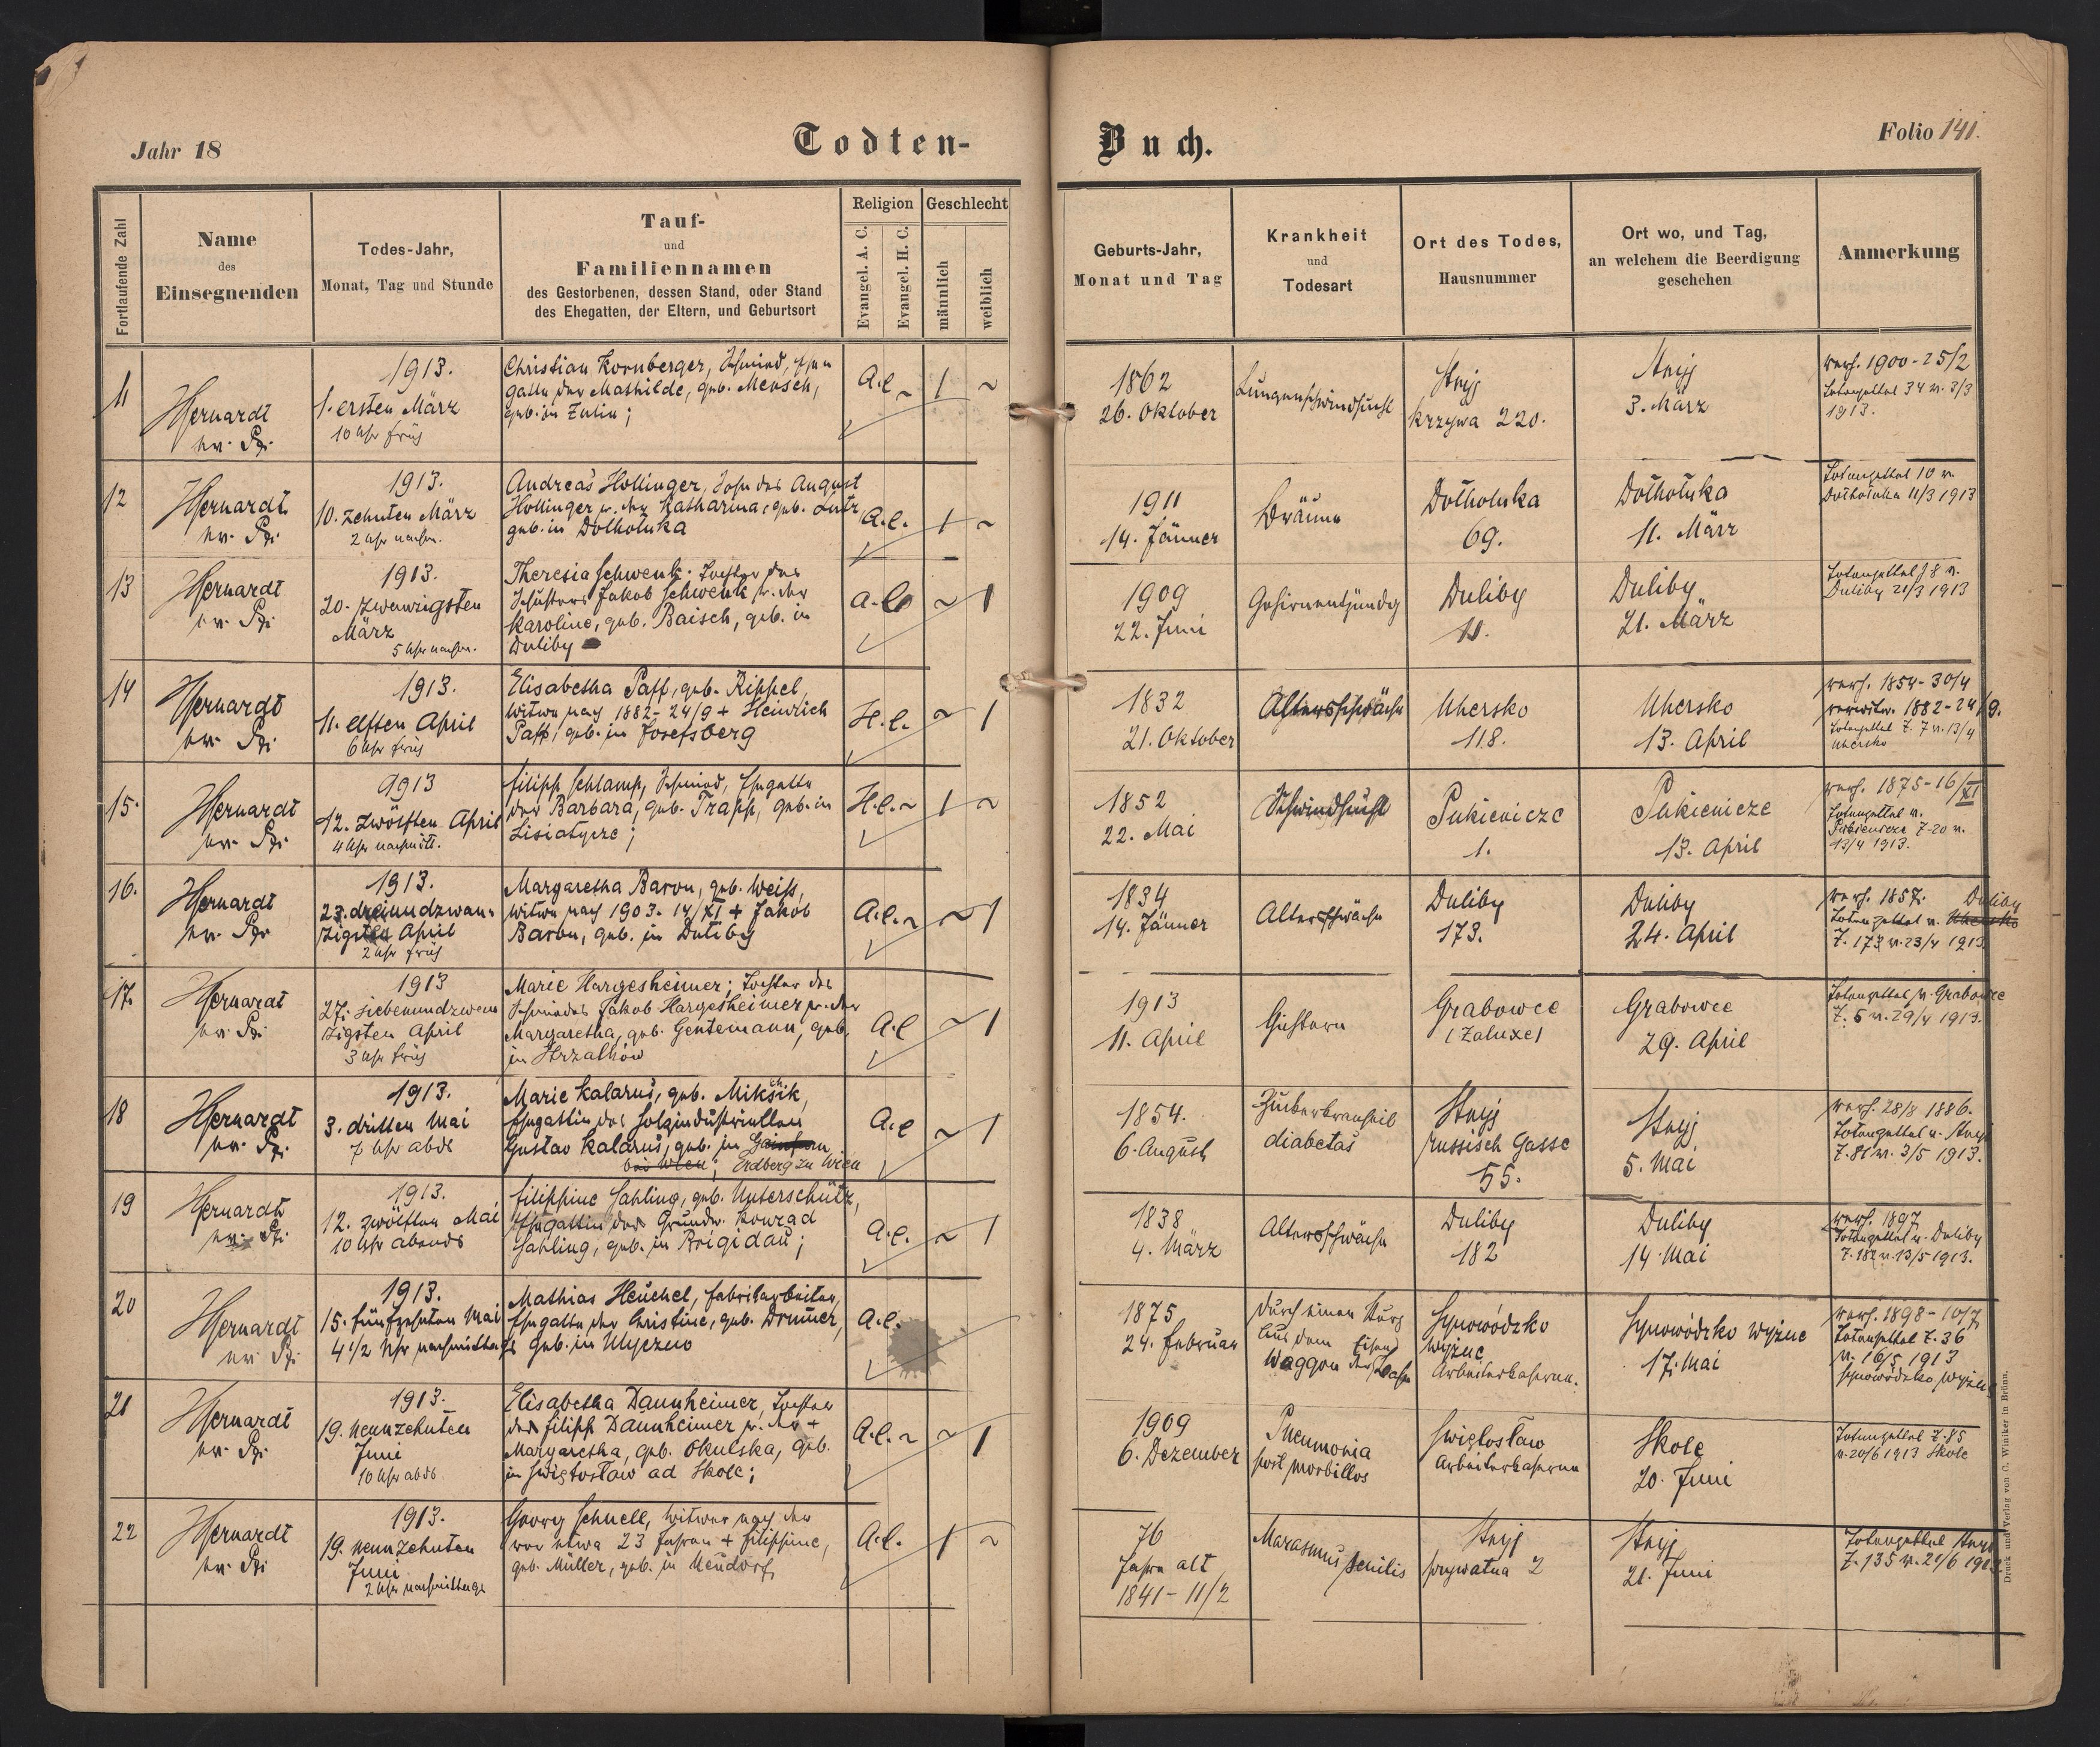 Jahr 18
Todten-
Buch.
Folio 141.
Fortlaufende Zahl
Name
des
Einsegnenden
Todes-Jahr,
Monat, Tag und Stunde
Tauf-
und
Familiennamen
des Gestorbenen, dessen Stand, oder Stand
des Ehegatten, der Eltern, und Geburtsort
Religion
Evangel. A. C.
Evangel. H. C.
Geschlecht
männlich
weiblich
Geburts-Jahr,
Monat und Tag
Krankheit
und
Todesart
Ort des Todes,
Hausnummer
Ort wo, und Tag,
an welchem die Beerdigung
geschehen
Anmerkung
11
Hernardt
1913.
1. ersten März
10 Uhr früh
Christian Kornberger, Schmied,
Gatte der Mathilde, geb. Mensch,
geb. in
A.C. ~ 1 ~
1862
26. Oktober
Lungenschwindsucht
Stryj
Krzywa 220.
Stryj
3. März
verh. 1900 - 25/2
Totenzettel 34 v. 3/3
1913.
12
Hernardt
1913.
10. Zehnten März
2 Uhr nachm.
Andreas Hollinger, Sohn des August
Hollinger u. der Katharina, geb. Lutz
geb. in Dołhołuka
A.C. 1 ~
1911
14. Jänner
Bräune
Dołhołuka
69.
Dołhołuka
11. März
Totenzettel 10 v.
Dołhołuka 11/3 1913
13
Hernardt
1913.
20. zwanzigsten
März
5 Uhr nachm.
Theresia Schwenk. Tochter des
Schusters Jakob Schwenk u. der
Karoline, geb. Baisch, geb. in
Duliby
A.C. ~ 1
1909
22. Juni
Gehirnentzündg
Duliby
11.
Duliby
21. März
Totenzettel 8 v.
Duliby 21/3 1913
14
Hernardt
1913.
11. elften April
6 Uhr früh
Elisabetha Paff, geb. Rippel,
Witwe nach 1882 - 24/9 + Heinrich
Paff, geb. in Josefsberg
H.C. ~ 1
1832
21. Oktober
Altersschwäche
Uhersko
118.
Uhersko
13. April
verh. 1854 - 30/4
verwitw. 1882 - 24/9.
Totenzettel Z. 7 v. 13/4
Uhersko
15.
Hernardt
1913
12. zwölften April
4 Uhr nachmitt.
Filipp Schlamp, Schmied, Ehegatte
der Barbara, geb. Trapp, geb. in
H.C. ~ 1 ~
1852
22. Mai
Schwindsucht
Pukienicze
1.
Pukienicze
13. April
verh. 1875 - 16/XI
Totenzettel v.
Pukienicze Z-20 v.
13/4 1913.
16.
Hernardt
1913.
23. dreiundzwan-
zigsten April
2 Uhr früh
Margaretha Baron, geb. Weiss,
Witwe nach 1903. 14/XI + Jakob
Baron, geb. in Duliby
A.C. ~ ~ 1
1834
14. Jänner
Altersschwäche
Duliby
173.
Duliby
24. April
verh. 1857. Duliby
Totenzettel v. Uhersko
Z. 173 v. 23/4 1913
17.
Hernardt
1913
27. siebenundzwan
zigsten April
3 Uhr früh
Marie Hargesheimer; Tochter des
Schmiedes Jakob Hargesheimer u. der
Margaretha, geb. Gentemann, geb.
in
A.C. ~ 1
1913
11. April
Grabowce
Grabowce
29. April
Totenzettel v. Grabowce
Z. 5 v. 29/4 1913.
18
Hernardt
1913.
3. dritten Mai
7 Uhr abds
Marie Kalarus, geb. Mikšik,
Ehegattin des Holzindustriellen
Gustav Kalarus, geb. in
bei Wien; Erdberg zu Wien
A.C. ~ 1
1854.
6. August
Zuckerkrankheit
diabetas
Stryj
russisch Gasse
55.
Stryj
5. Mai
verh. 28/8 1886.
Totenzettel v. Stryj
Z. 81 v. 3/5 1913.
19
Hernardt
1913.
12. zwölften Mai
10 Uhr abends
Filippine Sahling, geb. Unterschütz,
Ehegattin des Grundw. Konrad
Sahling, geb. in Brigidau;
A.C. ~ 1
1838
4. März
Altersschwäche
Duliby
182
Duliby
14. Mai
verh. 1897
Totenzettel v. Duliby
Z. 182 v. 13/5 1913.
20
Hernardt
1913.
15. fünfzehnten Mai
4 1/2 Uhr nachmittags
Mathias Heuchel, Fabriksarbeiter,
Ehegatte der Christine, geb. Drumer,
geb. in Ulyczno
A.C.
1875
24. Februar
durch einen Sturz
aus dem Eisenb
Waggon der Bahn
Synowódzko
wyżne
Arbeiterkaserne.
Synowódzko wyżne
17. Mai
verh. 1898 - 10/7
Totenzettel Z. 36
v. 16/5 1913
Synowódzko wyżne
21
Hernardt
1913.
19. neunzehnten
Juni
10 Uhr abds
Elisabetha Dannheimer, Tochter
des Filipp Dannheimer u. der +
Margaretha, geb. Okulska, geb.
in Świętosław ad Skole;
A.C. ~ ~ 1
1909
6. Dezember
Pneumonia
post morbillos
Świętosław
Arbeiterkaserne
Skole
20. Juni
Totenzettel Z. 85
v. 20/6 1913 Skole
22
Hernardt
1913.
19. neunzehnten
Juni
2 Uhr nachmittags
Georg Schnell, Witwer nach der
vor etwa 23 Jahren + Filippine,
geb. Müller, geb. in Neudorf,
A.C. 1 ~
76
Jahre alt
1841 - 11/2
Marasmus senilis
Stryj
prywatna 2
Stryj
21. Juni
Totenzettel Stryj
Z. 135 v. 21/6 1913.
Druck und Verlag von C. Winiker in Brünn.